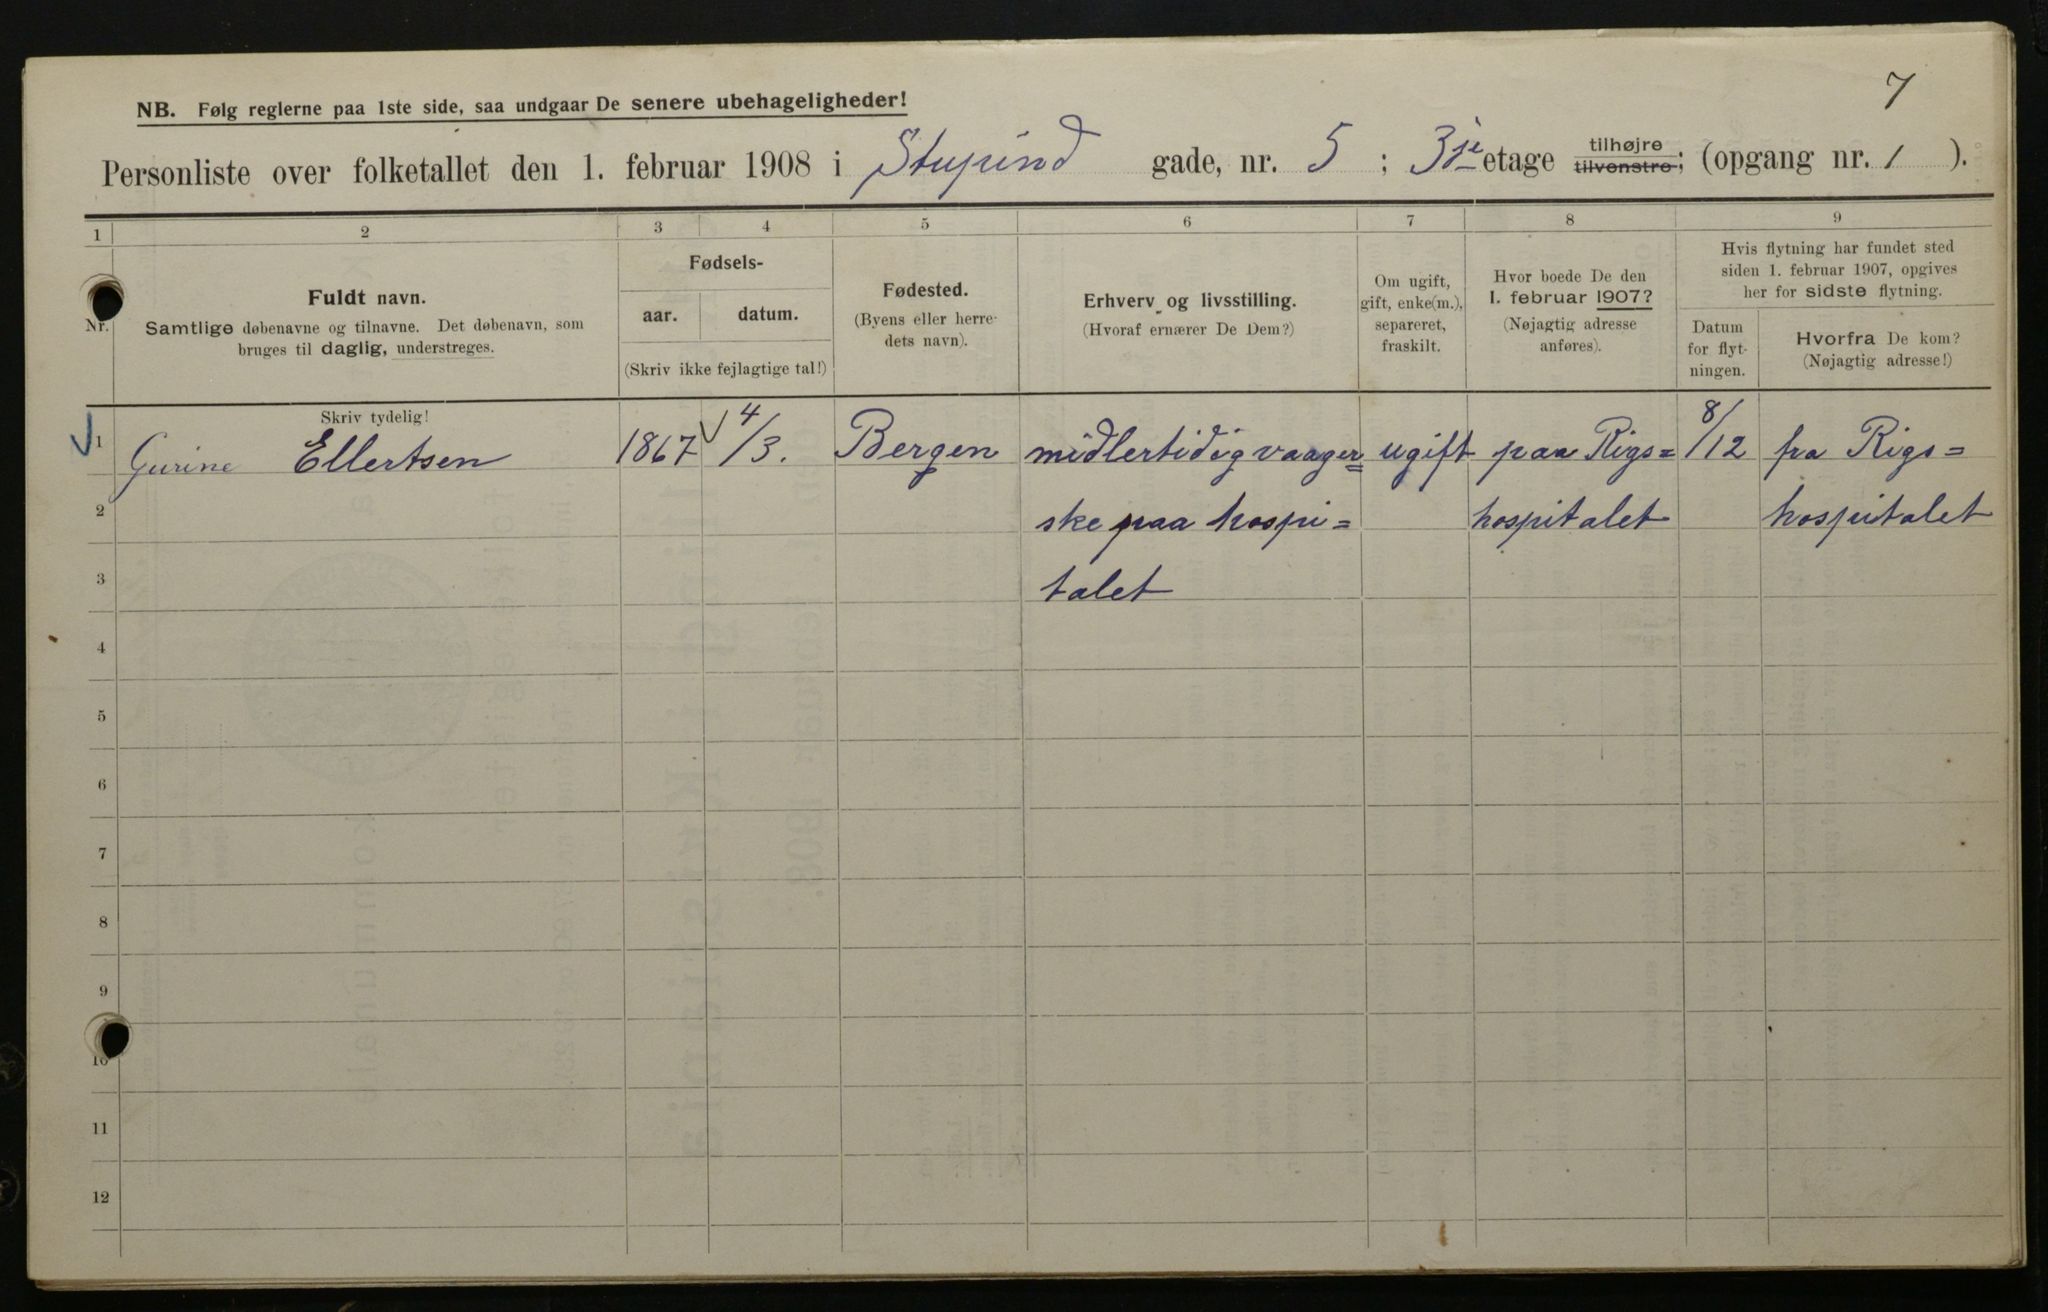 7
NB. Følg reglerne paa 1ste side, saa undgaar De senere ubehageligheder!
Personliste over folketallet den 1. februar 1908 i Stupind gade, nr. 5 ; 3je etage tilhøjre tilvenstre; (opgang nr. 1 ).
1 2 3 4 5 6 7 8 9
Nr.
Fuldt navn.
Samtlige døbenavne og tilnavne. Det døbenavn, som
bruges til daglig, understreges.
Skriv tydelig!
Fødsels-
aar. datum.
(Skriv ikke fejlagtige tal!)
Fødested.
(Byens eller herre-
dets navn).
Erhverv og livsstilling.
(Hvoraf ernærer De Dem?)
Om ugift,
gift, enke(m.),
separeret,
fraskilt.
Hvor boede De den
1. februar 1907?
(Nøjagtig adresse
anføres).
Hvis flytning har fundet sted
siden 1. februar 1907, opgives
her for sidste flytning.
Datum
for flyt-
ningen.
Hvorfra De kom?
(Nøjagtig adresse!)
1 Gurine Ellertsen 1867 4/3. Bergen midlertidig vaager= ugift paa Rigs= 8/12 fra Rigs=
2 ske paa hospi= hospitalet hospitalet
3 talet
4
5
6
7
8
9
10
11
12